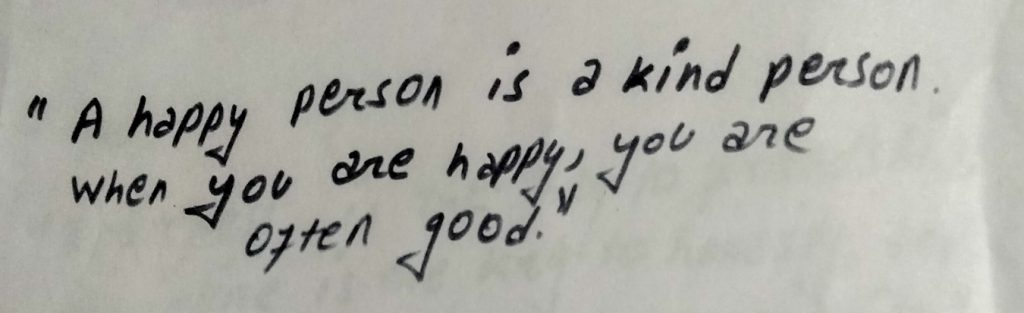 " A happy person is a kind person.
when you are happy, you are
often good."